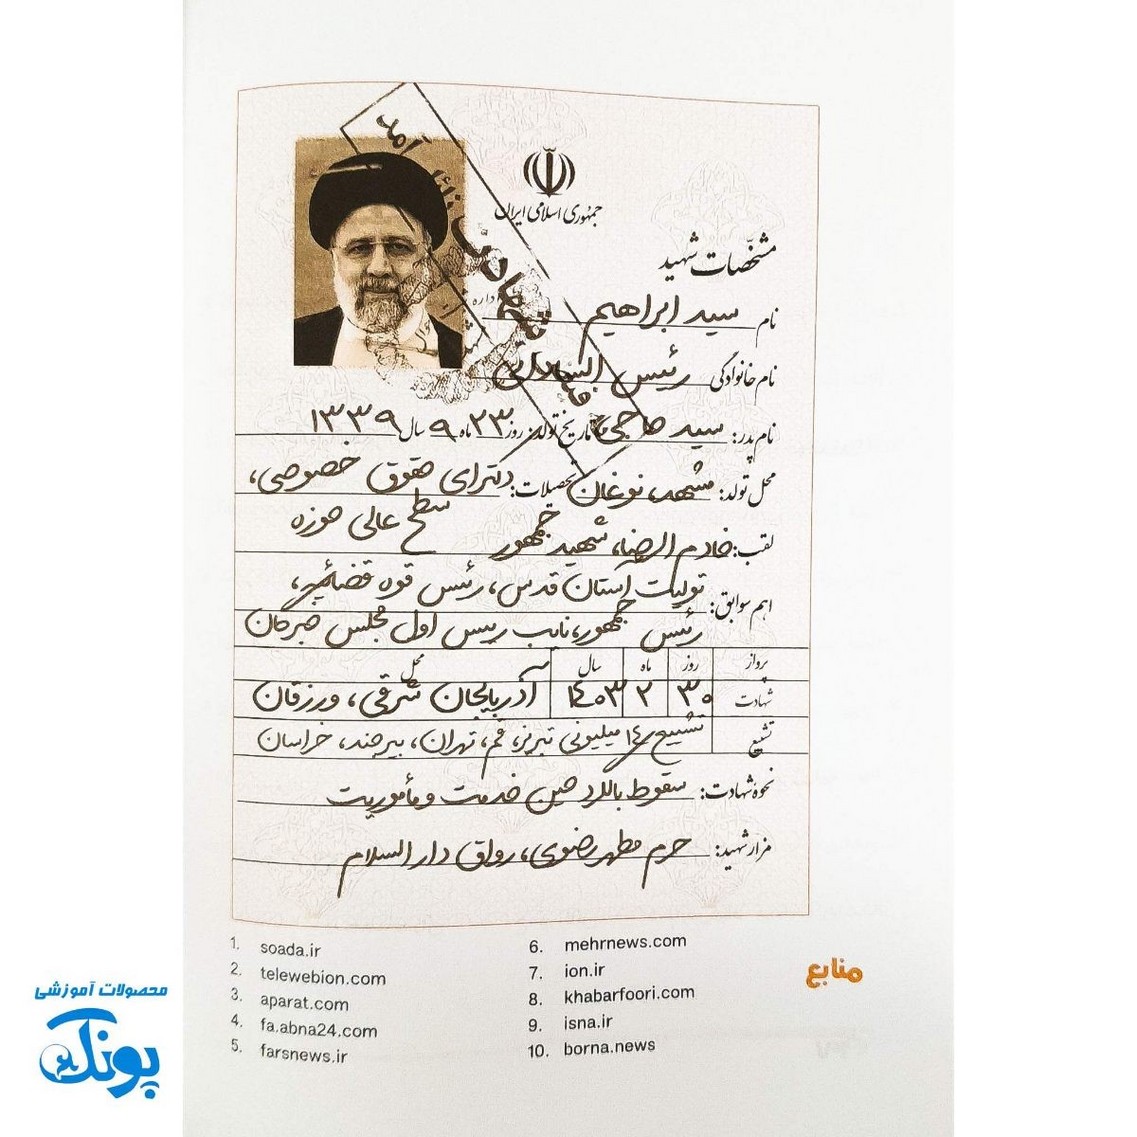 جمهوری اسلامی ایران
مشخصات شهید
نام سید ابراهیم
نام خانوادگی رئیس الساداتی
نام پدر: سید حاجی تاریخ تولد: روز ۲۳ ماه ۹ سال ۱۳۳۹
محل تولد: مشهد، نوغان تحصیلات: دکترای حقوق خصوصی،
سطح عالی حوزه
لقب: خادم الرضا، شهید جمهور
اهم سوابق: تولیت آستان قدس، رئیس قوه قضائیه،
رئیس جمهور، نایب رییس اول مجلس خبرگان
پرواز روز ماه سال محل
شهادت ۳۰ ۲ ۱۴۰۳ آذربایجان شرقی، ورزقان
تشییع تشییع ۱۴ میلیونی تبریز، قم، تهران، بیرجند، خراسان
نحوه شهادت: سقوط بالگرد حین خدمت و مأموریت
مزار شهید: حرم مطهر رضوی، رواق دار السلام
منابع
1. soada.ir
2. telewebion.com
3. aparat.com
4. fa.abna24.com
5. farsnews.ir
6. mehrnews.com
7. ion.ir
8. khabarfoori.com
9. isna.ir
10. borna.news
محصولات آموزشی
پونک